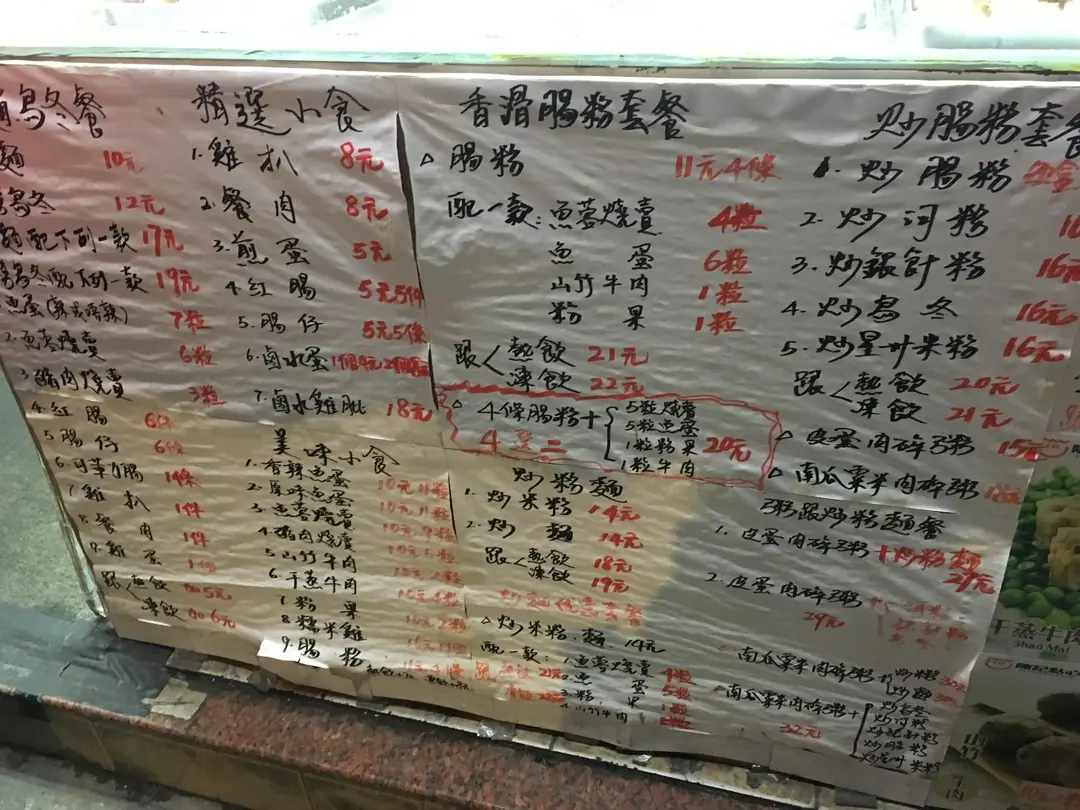 烏冬餐
麵 10元
烏冬 12元
麵配下列一款 17元
烏冬配下列一款 19元
魚蛋 7粒
2.魚蓉燒賣 6粒
3.豬肉燒賣 3粒
4.紅腸 6件
5.腸仔 6件
6. 腸 1條
7.雞扒 1件
8.餐肉 1件
9.雞蛋
跟 熱飲 加5元
凍飲 加6元
精選小食
1.雞扒 8元
2.餐肉 8元
3.煎蛋 5元
4.紅腸 5元5件
5.腸仔 5元5條
6.鹵水蛋
7.鹵水雞肶 18元
美味小食
1.香辣魚蛋 10元11粒
2.原味魚蛋 10元11粒
3.魚蓉燒賣 10元9粒
4.豬肉燒賣 10元5粒
5.山竹牛肉 2粒
6.干蒸牛肉 10元4粒
7粉果 10元2粒
8糯米雞
9.腸粉 4條
香滑腸粉套餐
△腸粉 11元4條
配一款:魚蓉燒賣 4粒
魚蛋 6粒
山竹牛肉 1粒
粉果 1粒
跟 熱飲 21元
凍飲 22元
△4條腸粉+ 5粒燒賣
5粒魚蛋
1粒粉果
1粒牛肉
4選二 20元
炒粉麵
1.炒米粉 14元
2.炒麵 14元
跟 熱飲 18元
凍飲 19元
炒麵優惠套餐
△炒米粉.麵 14元
配一款:1.魚蓉燒賣 4粒
2.魚蛋 5粒
3.粉果 1粒
4.山竹牛肉
跟
炒腸粉套餐
1.炒腸粉
2.炒河粉
3.炒銀針粉 16元
4.炒烏冬 16元
5.炒星州米粉 16元
跟 熱飲 20元
凍飲 21元
△皮蛋肉碎粥 15元
△南瓜粟米肉碎粥
粥跟炒粉麵餐
1.皮蛋肉碎粥+炒粉麵 27元
2.皮蛋肉碎粥 29元
南瓜粟米肉碎粥+ 炒粉
炒麵
南瓜粟米肉碎粥+ 32元
炒烏冬
炒河粉
炒銀針粉
炒腸粉
炒星州米粉
干蒸牛肉
Shao Mai
山竹牛肉